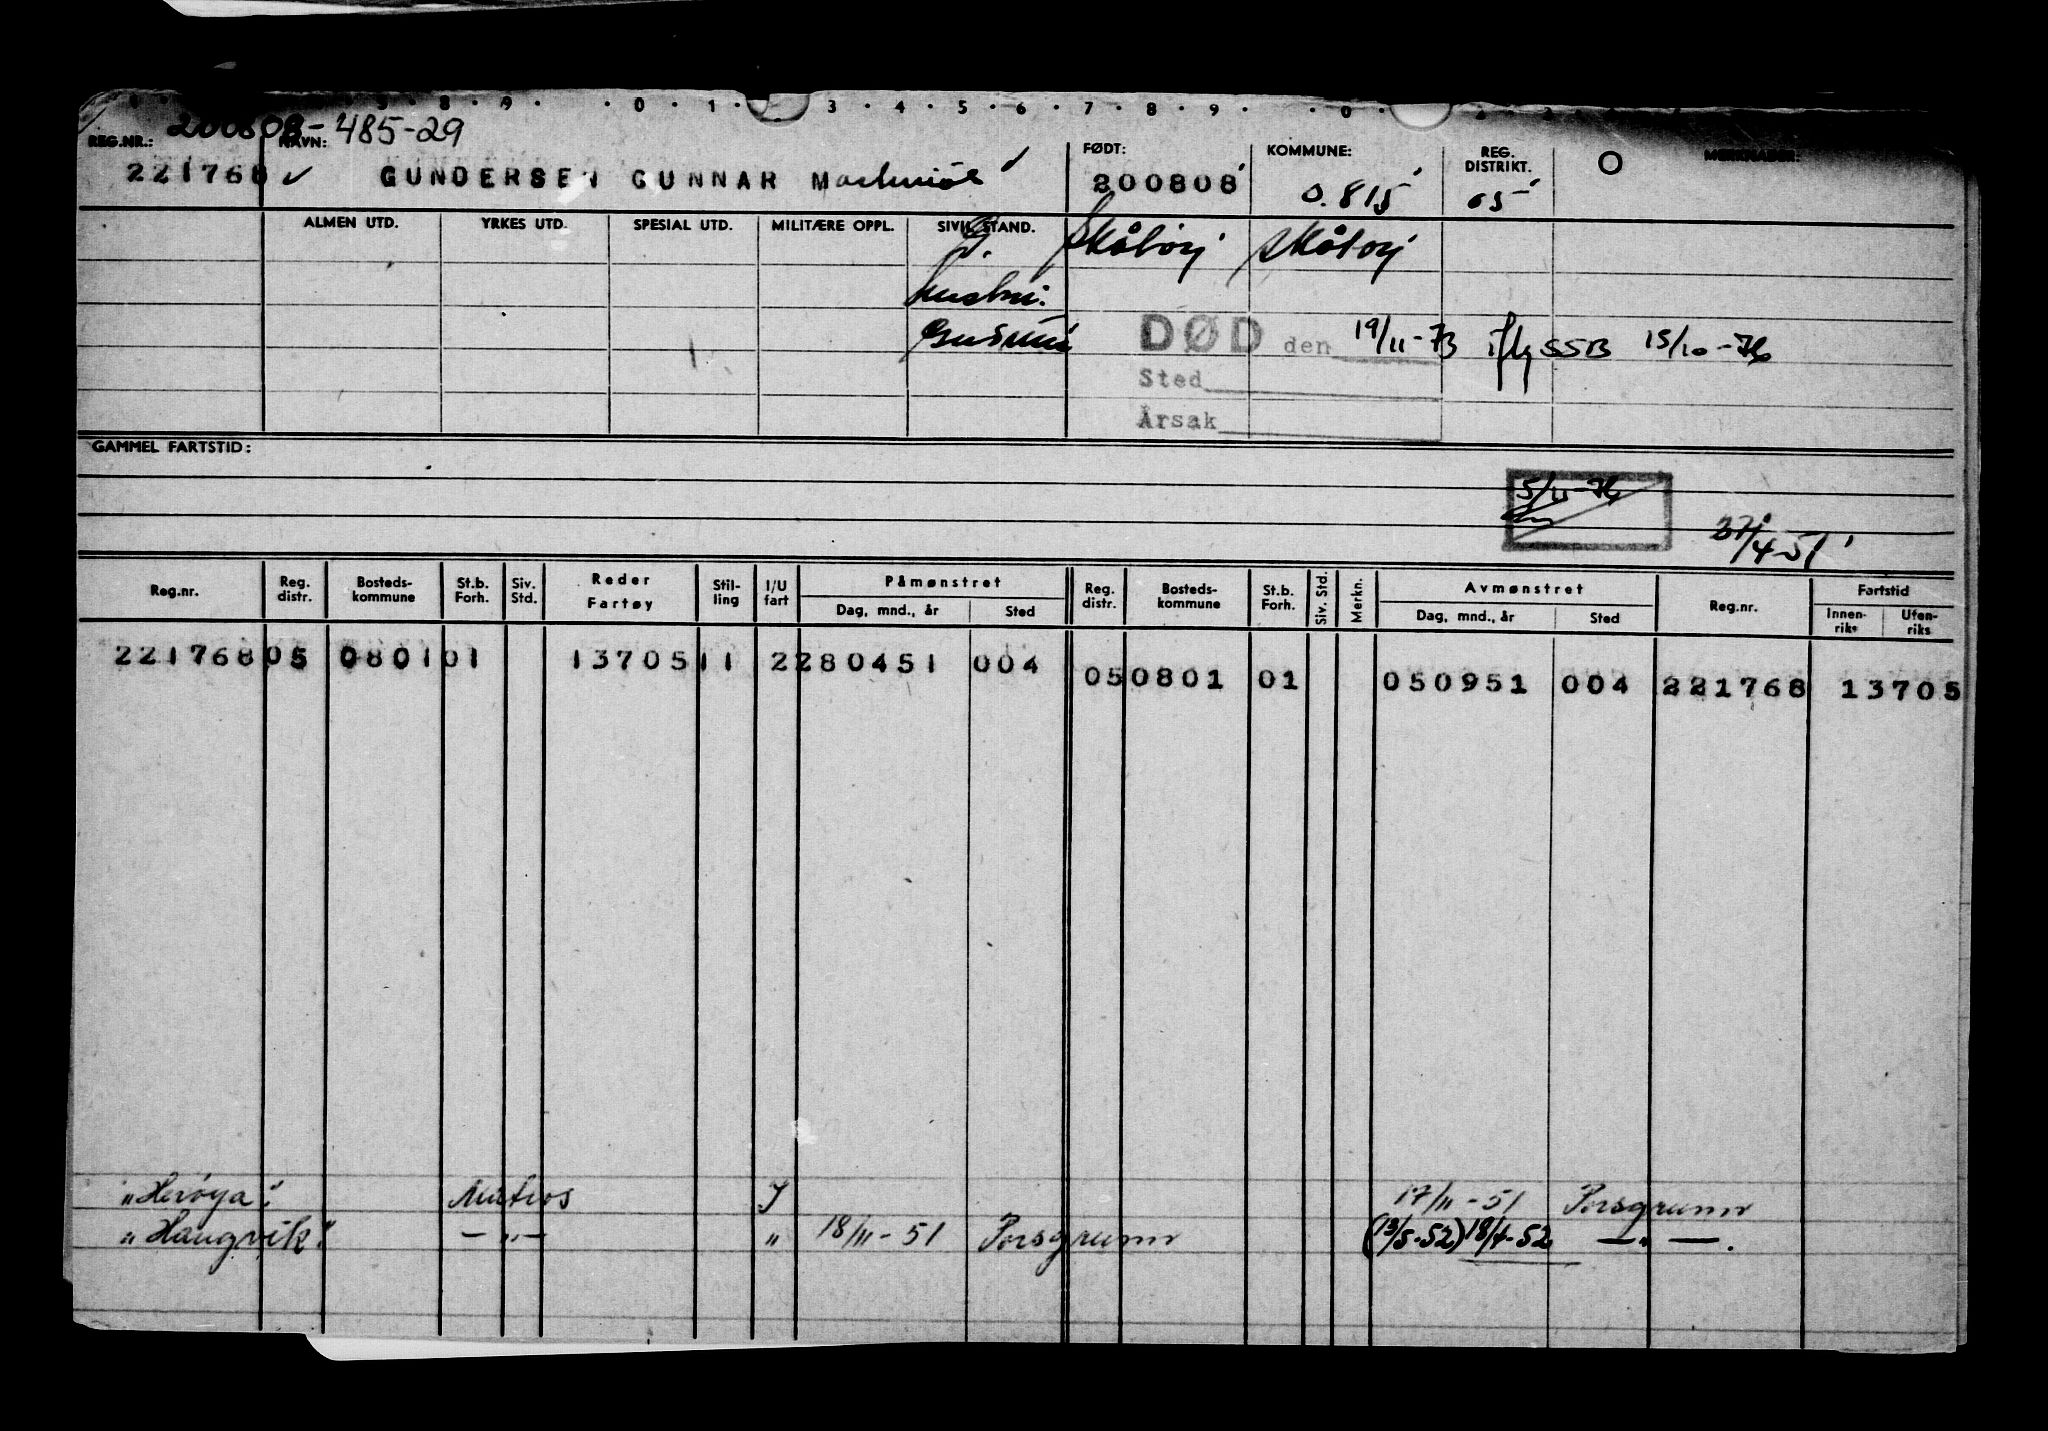 8 9 0 1 3 4 5 6 7 8 9 0
200808-485-29
REG.NR.: NAVN: FØDT: KOMMUNE: REG. DISTRIKT. O MERKNADER:
221768 GUNDERSEN GUNNAR 200808 0.815 05
ALMEN UTD. YRKES UTD. SPESIAL UTD. MILITÆRE OPPL. SIVIL STAND. Skåtøy Skåtøy
g.
hustru.
DØD den 19/11-73 iflg SSB 15/10-76
Sted
Årsak
GAMMEL FARTSTID:
5/11-76
27/4-51
Reg.nr. Reg. distr. Bosteds-kommune St.b. Forh. Siv. Std. Reder Fartøy Stil-ling I/U fart Påmønstret Dag, mnd., år Sted Reg. distr. Bosteds-kommune St.b. Forh. Siv. Std. Merkn. Avmønstret Dag, mnd., år Sted Reg.nr. Fartstid Innen-riks Uten-riks
221768 05 0801 01 13705 11 2 280451 004 05 0801 01 050951 004 221768 13705
"Herøya" Matros I 17/11-51 Porsgrunn
"Haugvik" —"— " 18/11-51 Porsgrunn (13/5-52) 18/4-52 —"—.